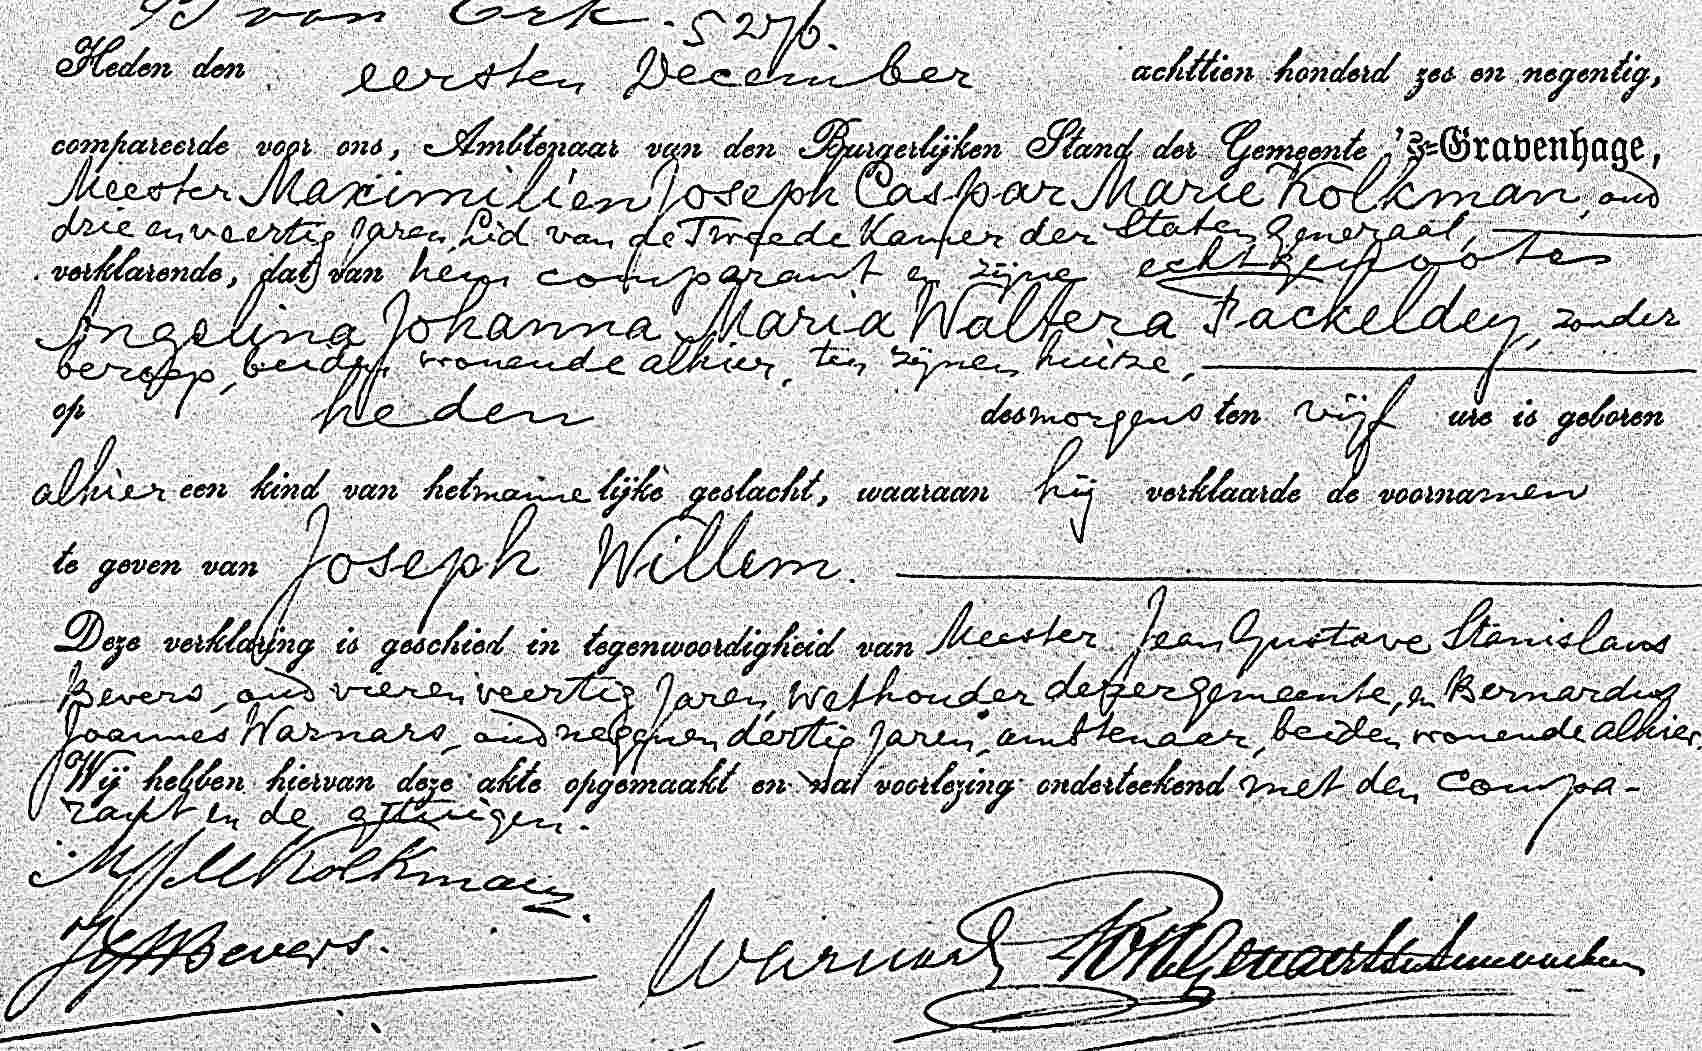 van Erk. 5276.
Heden den eersten December achttien honderd zes en negentig,
compareerde voor ons, Ambtenaar van den Burgerlijken Stand der Gemeente 's-Gravenhage,
Meester Maximilien Joseph Caspar Marie Kolkman, oud
drie en veertig jaren, Lid van de Tweede Kamer der Staten Generaal,
verklarende, dat van hem comparant en zijne echtgenoote
Angelina Johanna Maria Waltera Fackeldey, zonder
beroep, beiden wonende alhier, ten zijnen huize,
op heden des morgens ten vijf ure is geboren
alhier een kind van het mannelijke geslacht, waaraan hij verklaarde de voornamen
te geven van Joseph Willem.
Deze verklaring is geschied in tegenwoordigheid van Meester Jean Gustave Stanislaus
Bevers, oud vier en veertig jaren, Wethouder dezer gemeente, en Bernardus
Joannes Warnars, oud negen en dertig jaren, ambtenaar, beiden wonende alhier.
Wij hebben hiervan deze akte opgemaakt en na voorlezing onderteekend met den compa-
rant en de getuigen.
MJCM Kolkman
JGS Bevers.
Warnars